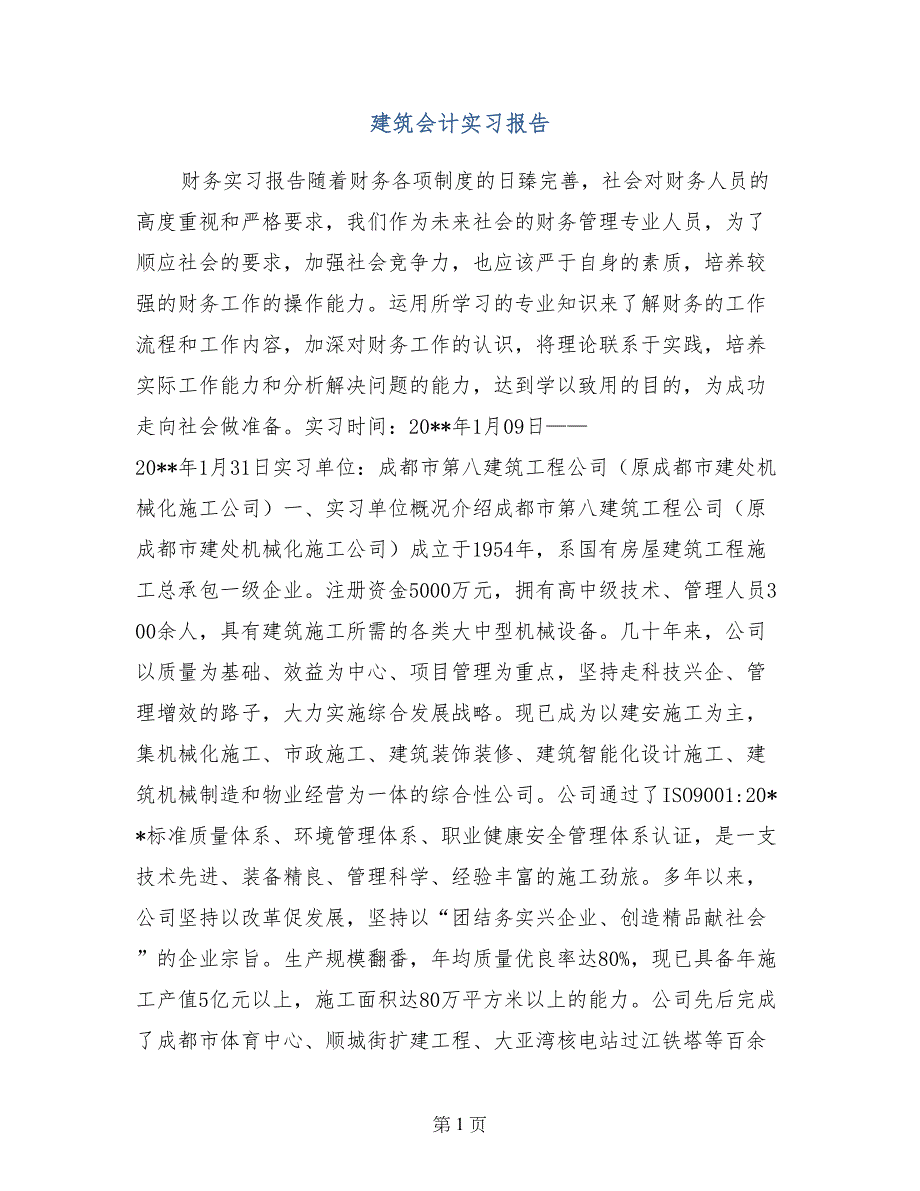 建筑会计实习报告
财务实习报告随着财务各项制度的日臻完善，社会对财务人员的
高度重视和严格要求，我们作为未来社会的财务管理专业人员，为了
顺应社会的要求，加强社会竞争力，也应该严于自身的素质，培养较
强的财务工作的操作能力。运用所学习的专业知识来了解财务的工作
流程和工作内容，加深对财务工作的认识，将理论联系于实践，培养
实际工作能力和分析解决问题的能力，达到学以致用的目的，为成功
走向社会做准备。实习时间：20**年1月09日——
20**年1月31日实习单位：成都市第八建筑工程公司（原成都市建处机
械化施工公司）一、实习单位概况介绍成都市第八建筑工程公司（原
成都市建处机械化施工公司）成立于1954年，系国有房屋建筑工程施
工总承包一级企业。注册资金5000万元，拥有高中级技术、管理人员3
00余人，具有建筑施工所需的各类大中型机械设备。几十年来，公司
以质量为基础、效益为中心、项目管理为重点，坚持走科技兴企、管
理增效的路子，大力实施综合发展战略。现已成为以建安施工为主，
集机械化施工、市政施工、建筑装饰装修、建筑智能化设计施工、建
筑机械制造和物业经营为一体的综合性公司。公司通过了ISO9001:20*
*标准质量体系、环境管理体系、职业健康安全管理体系认证，是一支
技术先进、装备精良、管理科学、经验丰富的施工劲旅。多年以来，
公司坚持以改革促发展，坚持以“团结务实兴企业、创造精品献社会
”的企业宗旨。生产规模翻番，年均质量优良率达80%，现已具备年施
工产值5亿元以上，施工面积达80万平方米以上的能力。公司先后完成
了成都市体育中心、顺城街扩建工程、大亚湾核电站过江铁塔等百余
第 1 页